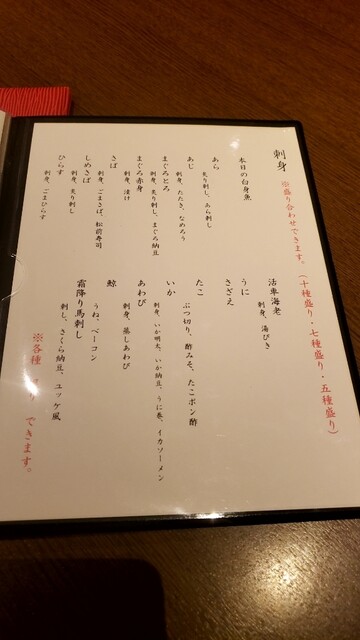 刺身
※盛り合わせできます。(十種盛り・七種盛り・五種盛り)
本日の白身魚
あら
炙り刺し、あら刺し
あじ
刺身、たたき、なめろう
まぐろとろ
刺身、炙り刺し、まぐろ納豆
まぐろ赤身
刺身、漬け
さば
刺身、ごまさば、松前寿司
しめさば
刺身、炙り刺し
ひらす
刺身、ごまひらす
活車海老
刺身、湯びき
うに
さざえ
たこ
ぶつ切り、酢みそ、たこポン酢
いか
刺身、いか明太、いか納豆、うに巻、イカソーメン
あわび
刺身、蒸しあわび
鯨
うね、ベーコン
霜降り馬刺し
刺し、さくら納豆、ユッケ風
※各種 できます。